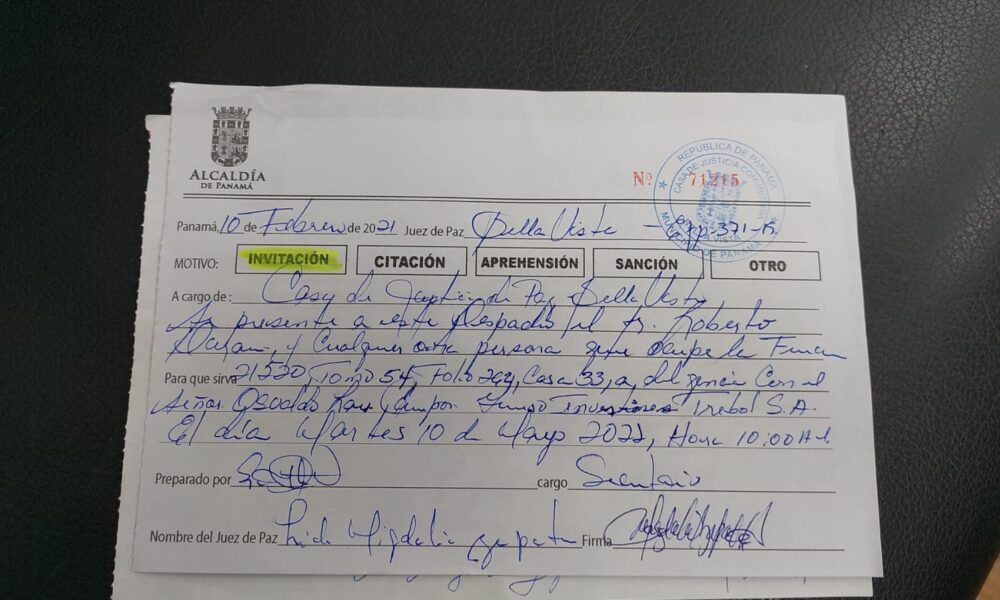 ALCALDÍA
DE PANAMÁ
REPÚBLICA DE PANAMÁ
CASA DE JUSTICIA COMUNITARIA
BELLA VISTA
MUNICIPIO DE PANAMÁ
Nº 71215
Panamá, 10 de Febrero de 2021 Juez de Paz Bella Vista - exp-371-R.
MOTIVO: INVITACIÓN CITACIÓN APREHENSIÓN SANCIÓN OTRO
A cargo de: Casa de Justicia de Paz Bella Vista
presente a este Despacho el Sr. Roberto
Duran, y Cualquier otra persona que ocupe la Finca
Para que sirva 21520, Tomo 54, Folio Casa 33, a diligencia Con el
Señor Osvaldo Grupo Inversiones Trebol S.A.
El día Martes 10 de Mayo 2022, Hora 10:00 A.M.
Preparado por cargo
Nombre del Juez de Paz Migdalia Zapata Firma